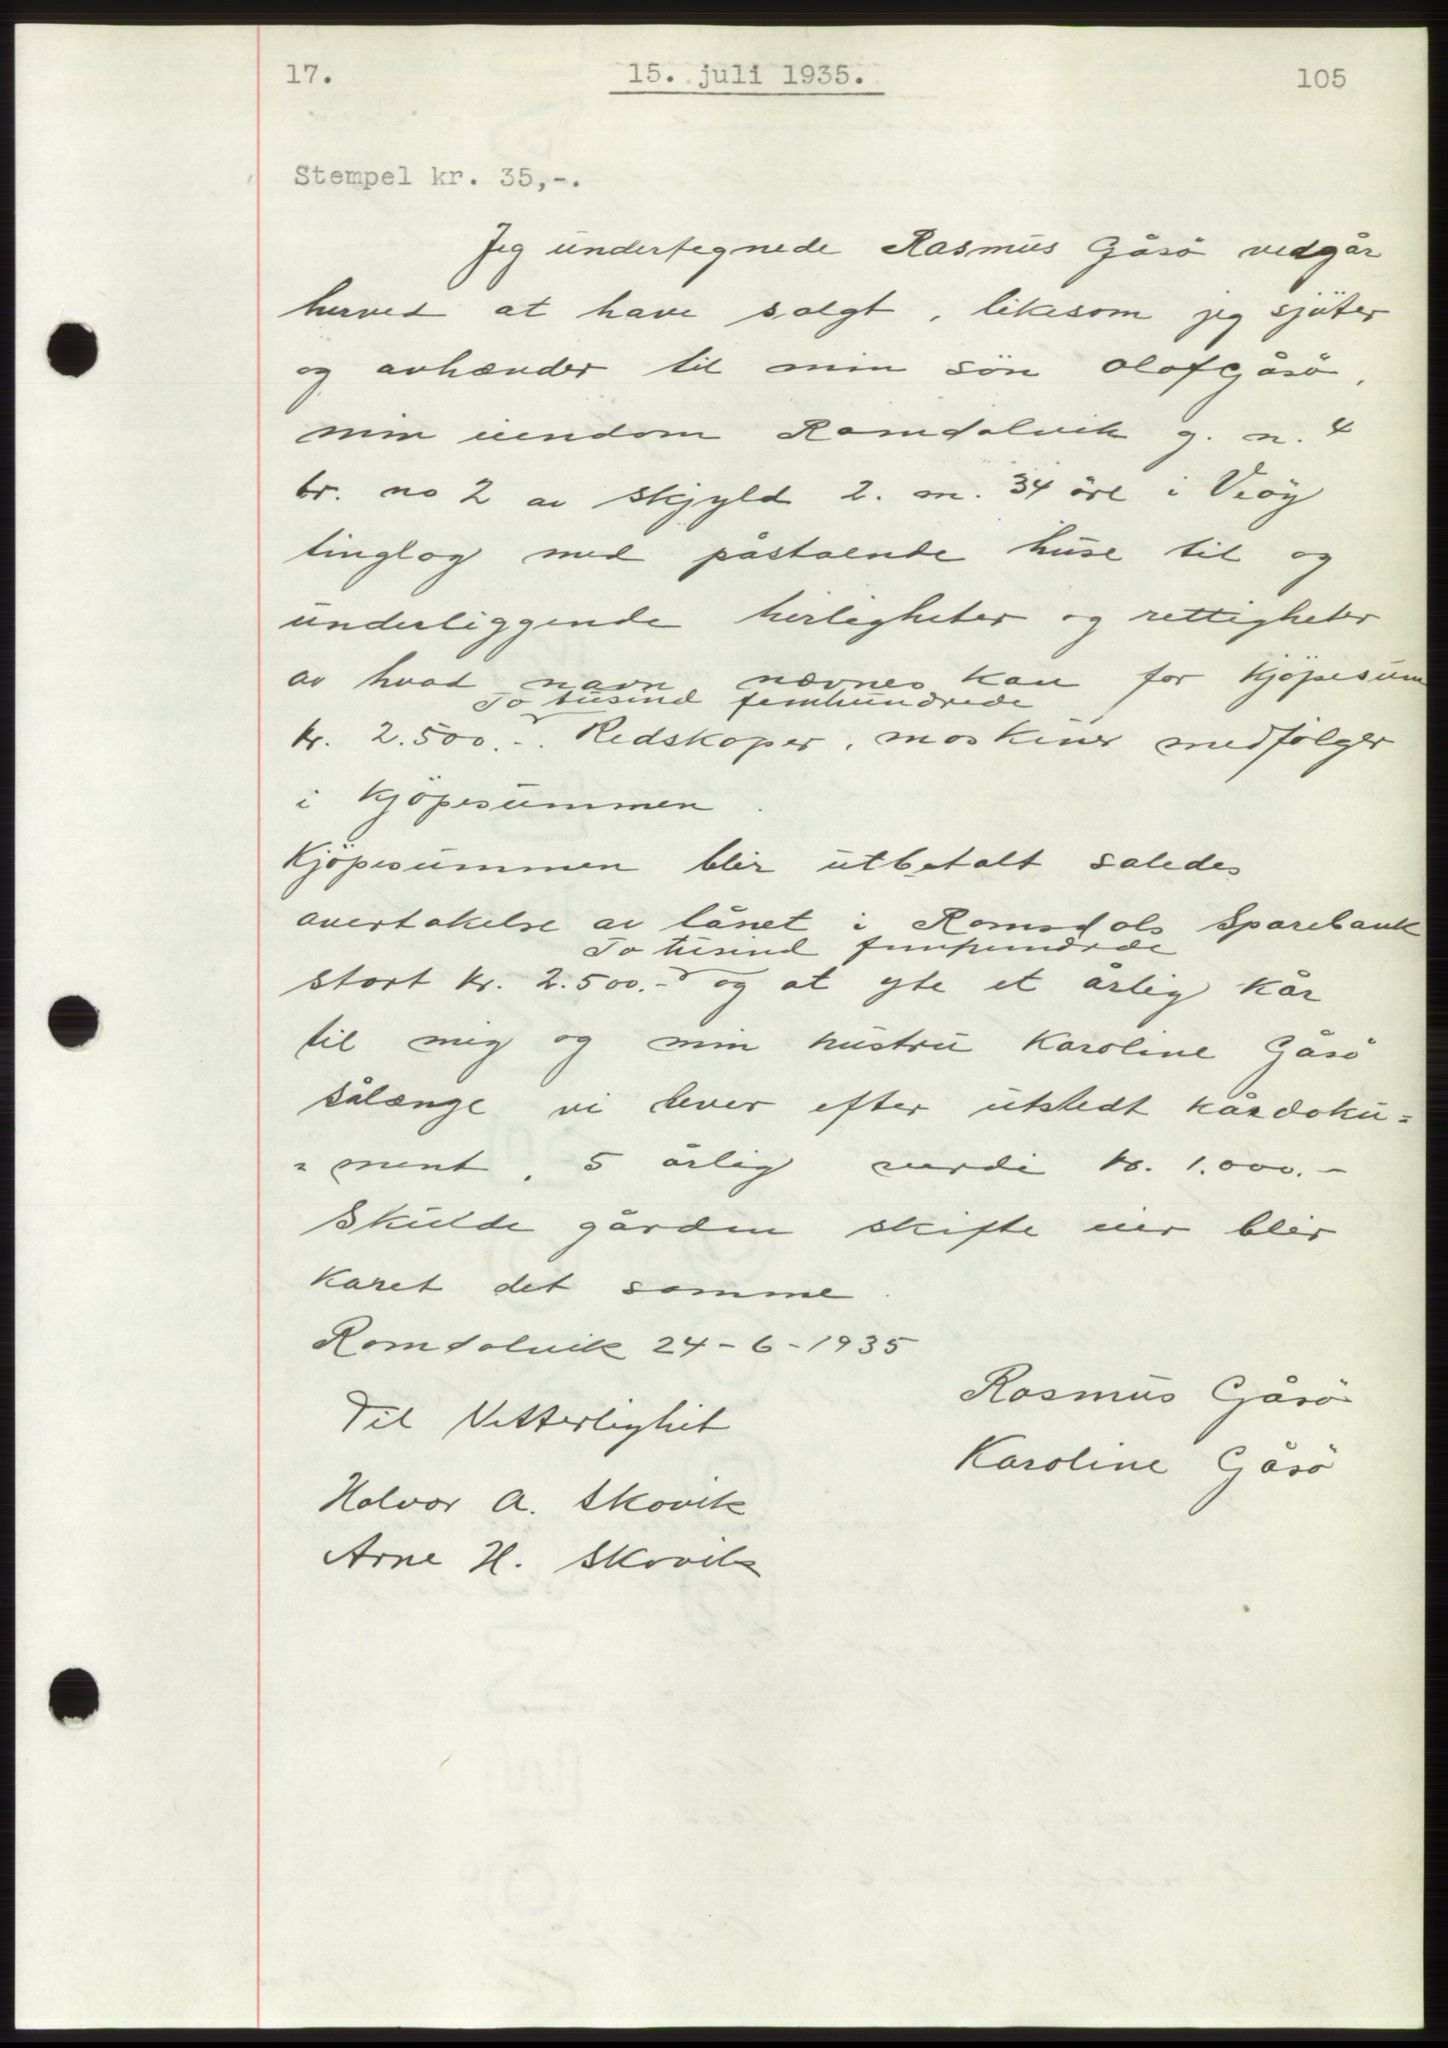 17. 15. juli 1935. 105
Stempel kr. 35,-.
Jeg undertegnede Rasmus Gåsö vedgår
herved at have solgt, likesom jeg sjöter
og avhænder til min sön Olof Gåsö,
min eiendom Romdalvik g. n. 4
br. no 2 av skjyld 2. m. 34 öre i Veöy
tinglag med påstående huse til og
underliggende herligheter og rettigheter
av hvad navn nævnes kan for kjöpesum
To tusind femhundrede
kr. 2.500.-. Redskaper, maskiner medfölger
i kjöpesummen.
Kjöpesummen blir utbetalt saledes
overtakelse av lånet i Romsdals Sparebank
To tusind femhundrede
stort kr. 2.500.- og at yte et årlig kår
til mig og min hustru Karoline Gåsö
sålænge vi lever efter utstedt kårdoku=
=ment, 5 årlig verdi kr. 1.000.-
Skulde gården skifte eier blir
karet det samme.
Romdalvik 24-6-1935
Rasmus Gåsö
Til Vitterlighet
Karoline Gåsö
Halvor A. Skovik
Arne H. Skovik